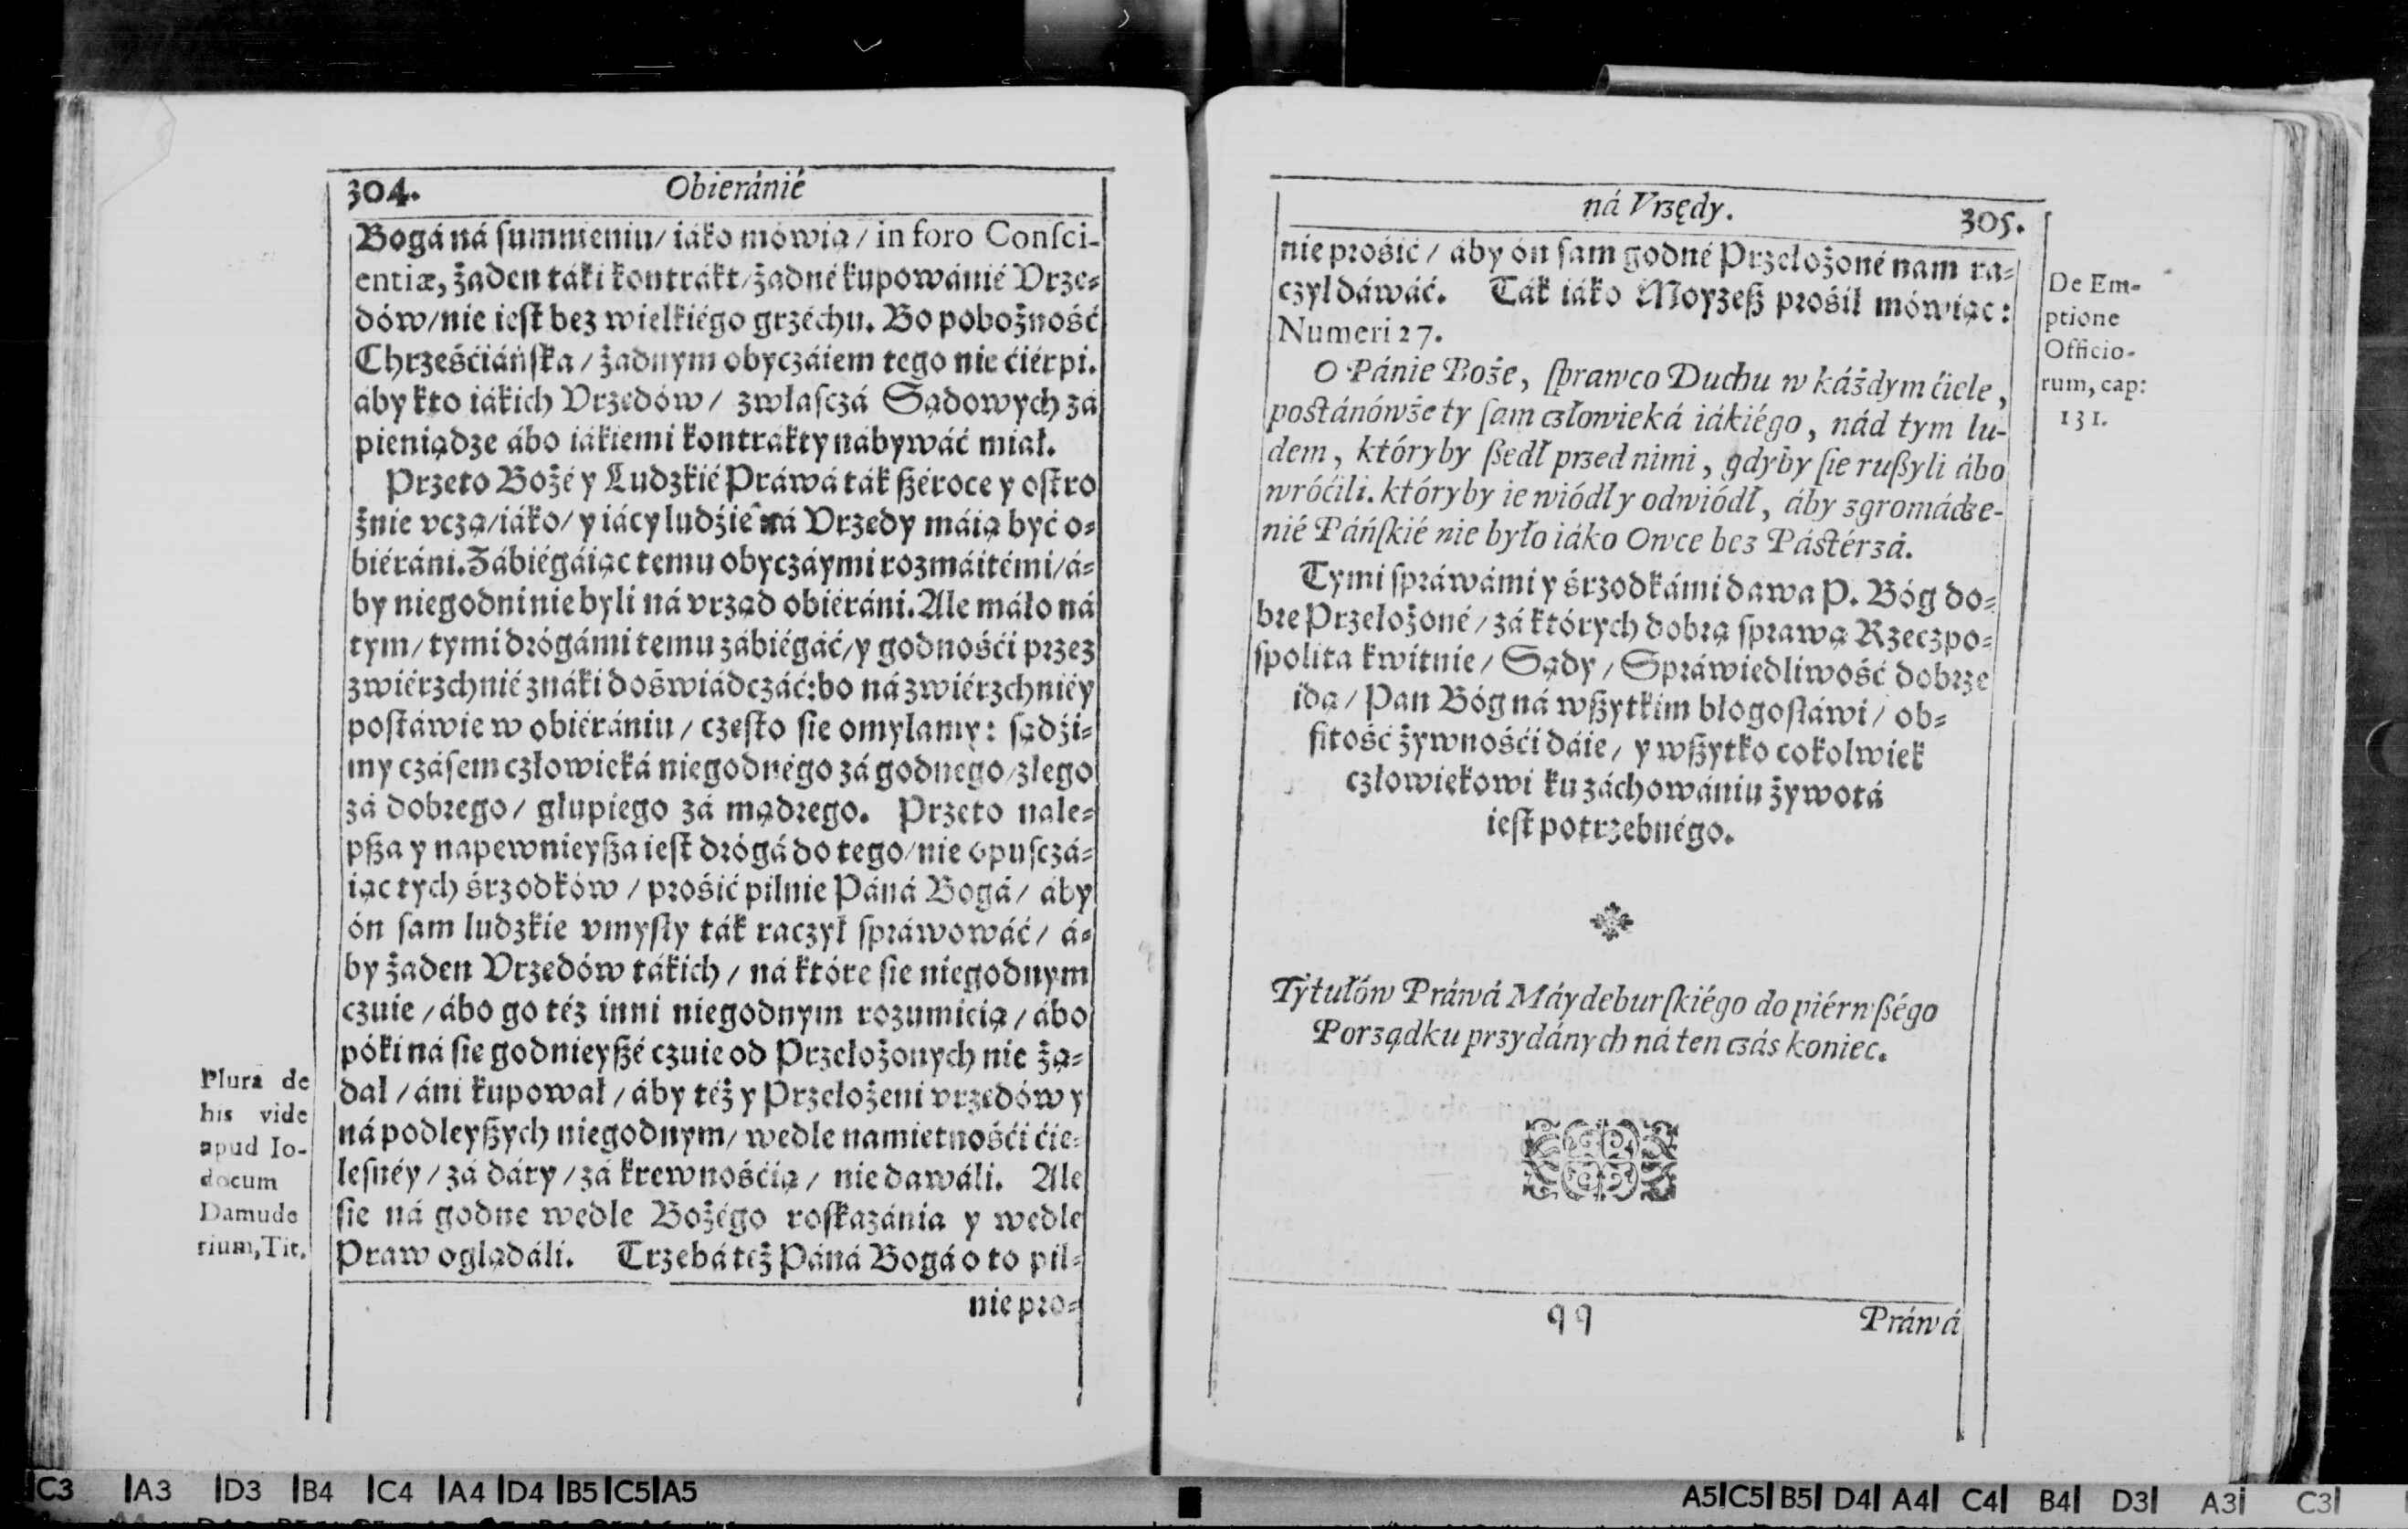 304. Obieránié
Bogá ná ſumnieniu/ iáko mówią/ in foro Conſci-
entiæ, żaden táki kontrákt/ żadné kupowánié Vrze-
dów/ nie ieſt bez wielkiégo grzéchu. Bo pobożność
Chrześćiáńſka/ żadnym obyczáiem tego nie ćiérpi.
áby kto iákich Vrzedów/ zwłaſczá Sądowych zá
pieniądze ábo iákiemi kontrákty nábywáć miał.
Przeto Bożé y Ludzkié Práwá ták ßéroce y oſtro
żnie vczą/ iáko/ y iácy ludźie ná Vrzedy máią być o-
biéráni. Zábiégáiąc temu obyczáymi rozmáitémi/ á-
by niegodni nie byli ná vrząd obiéráni. Ale máło ná
tym/ tymi drógámi temu zábiégáć/ y godnośći przez
zwiérzchnié znáki doświádczáć: bo ná zwiérzchniéy
poſtáwie w obiérániu/ czeſto ſie omylamy: ſądźi-
my czáſem człowieká niegodnégo zá godnego/ złego
zá dobrego/ głupiego zá mądrego. Przeto nale-
pßa y napewnieyßa ieſt drógá do tego/ nie opuſczá-
iąc tych śrzodków/ prośić pilnie Páná Bogá/ áby
ón ſam ludzkie vmyſły ták raczył ſpráwowáć/ á-
by żaden Vrzedów tákich/ ná które ſie niegodnym
czuie/ ábo go téż inni niegodnym rozumieią/ ábo
póki ná ſie godnieyßé czuie od Przełożonych nie żą-
dał/ áni kupował/ áby téż y Przełożeni vrzedów y
ná podleyßych niegodnym/ wedle namietnośći ćie-
leſnéy/ zá dáry/ zá krewnośćią/ nie dawáli. Ale
ſie ná godne wedle Bożégo roſkazánia y wedle
Praw oglądáli. Trzebá też Páná Bogá o to pil-
nie pro-
Plura de
his vide
apud Io-
docum
Damude
rium, Tit.
ná Vrzędy. 305.
nie prośić/ áby ón ſam godné Przełożoné nam ra-
czył dáwáć. Ták iáko Moyzeß prośił mówiąc:
Numeri 27.
O Pánie Boże, ſprawco Duchu w káżdym ćiele,
poſtánówże ty ſam człowieká iákiégo, nád tym lu-
dem, któryby ßedł przed nimi, gdyby ſie rußyli ábo
wróćili. któryby ie wiódł y odwiódł, áby zgromádze-
nié Páńſkié nie było iáko Owce bez Páſtérzá.
Tymi ſpráwámi y śrzodkámi dawa P. Bóg do-
bre Przełożoné/ zá których dobrą ſprawą Rzeczpo-
ſpolita kwitnie/ Sądy/ Spráwiedliwość dobrze
idą/ Pan Bóg ná wßytkim błogoſłáwi/ ob-
fitość żywnośći dáie/ y wßytko cokolwiek
człowiekowi ku záchowániu żywotá
ieſt potrzebnégo.
Tytułów Práwá Máydeburſkiégo do piérwßégo
Porządku przydánych ná ten czás koniec.
qq Práwá
De Em-
ptione
Officio-
rum, cap:
131.
C3 A3 D3 B4 C4 A4 D4 B5 C5 A5
A5 C5 B5 D4 A4 C4 B4 D3 A3 C3